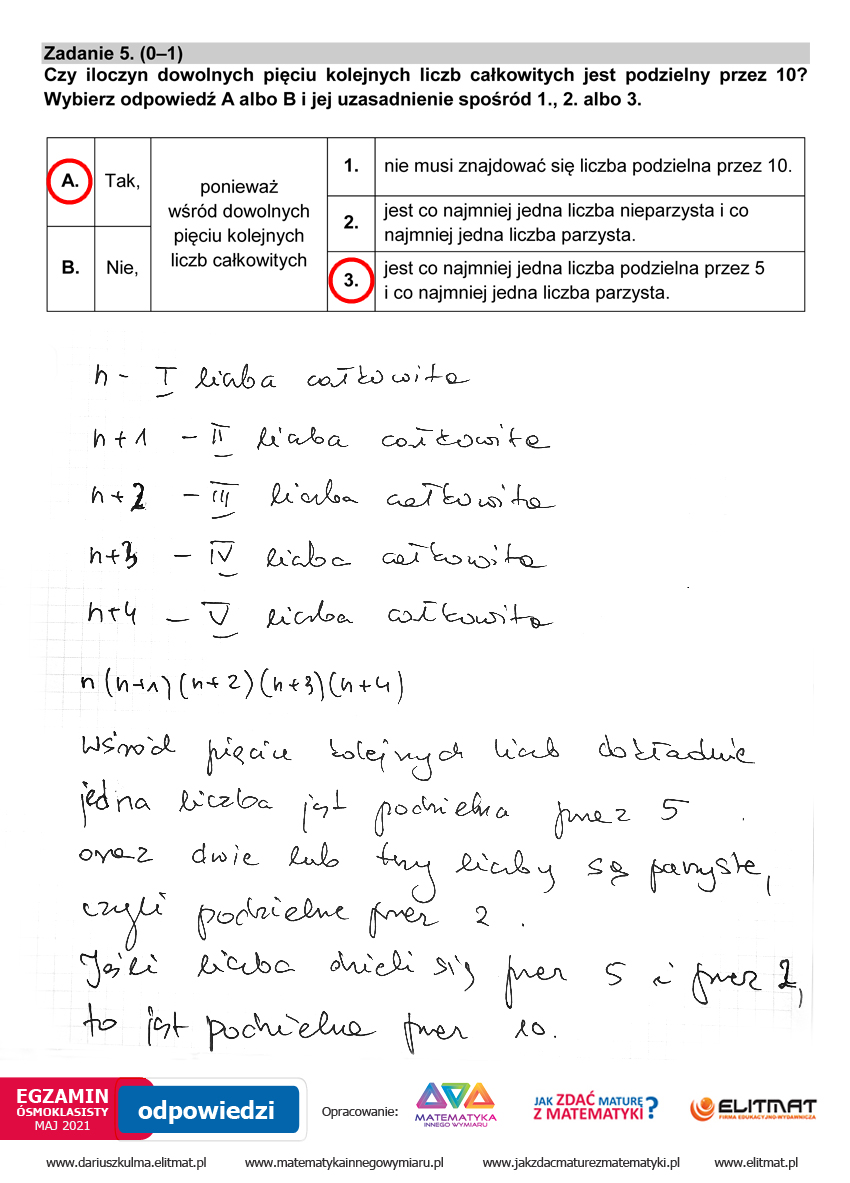 Zadanie 5. (0–1)
Czy iloczyn dowolnych pięciu kolejnych liczb całkowitych jest podzielny przez 10?
Wybierz odpowiedź A albo B i jej uzasadnienie spośród 1., 2. albo 3.
A.
Tak,
B.
Nie,
ponieważ
wśród dowolnych
pięciu kolejnych
liczb całkowitych
1.
nie musi znajdować się liczba podzielna przez 10.
2.
jest co najmniej jedna liczba nieparzysta i co
najmniej jedna liczba parzysta.
3.
jest co najmniej jedna liczba podzielna przez 5
i co najmniej jedna liczba parzysta.
n - I liczba całkowita
n+1 - II liczba całkowita
n+2 - III liczba całkowita
n+3 - IV liczba całkowita
n+4 - V liczba całkowita
n(n+1)(n+2)(n+3)(n+4)
Wśród pięciu kolejnych liczb dokładnie
jedna liczba jest podzielna przez 5
oraz dwie lub trzy liczby są parzyste,
czyli podzielne przez 2.
Jeśli liczba dzieli się przez 5 i przez 2,
to jest podzielna przez 10.
EGZAMIN
ÓSMOKLASISTY
MAJ 2021
odpowiedzi
Opracowanie:
MATEMATYKA
INNEGO WYMIARU
JAK ZDAĆ MATURĘ
Z MATEMATYKI?
ELITMAT
FIRMA EDUKACYJNO-WYDAWNICZA
www.dariuszkulma.elitmat.pl www.matematykainnegowymiaru.pl www.jakzdacmaturezmatematyki.pl www.elitmat.pl